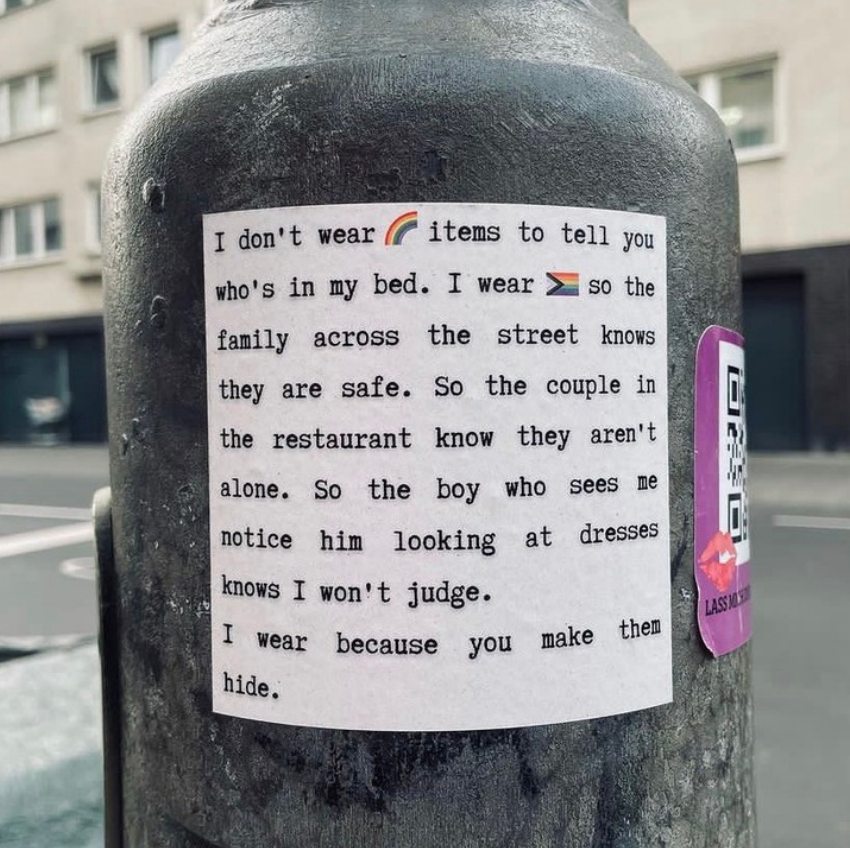 I don't wear 🌈 items to tell you
who's in my bed. I wear 🏳️‍🌈 so the
family across the street knows
they are safe. So the couple in
the restaurant know they aren't
alone. So the boy who sees me
notice him looking at dresses
knows I won't judge.
I wear because you make them
hide.
LASS